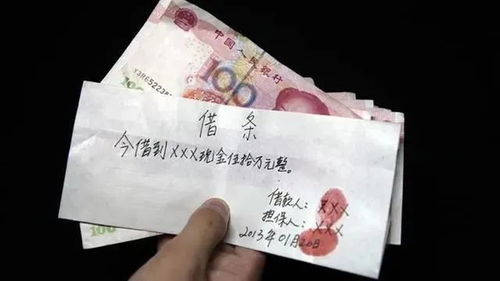 中国人民银行
100
借条
今借到XXX现金伍拾万元整。
借款人：XXX
担保人：XXX
2013年01月20日
100